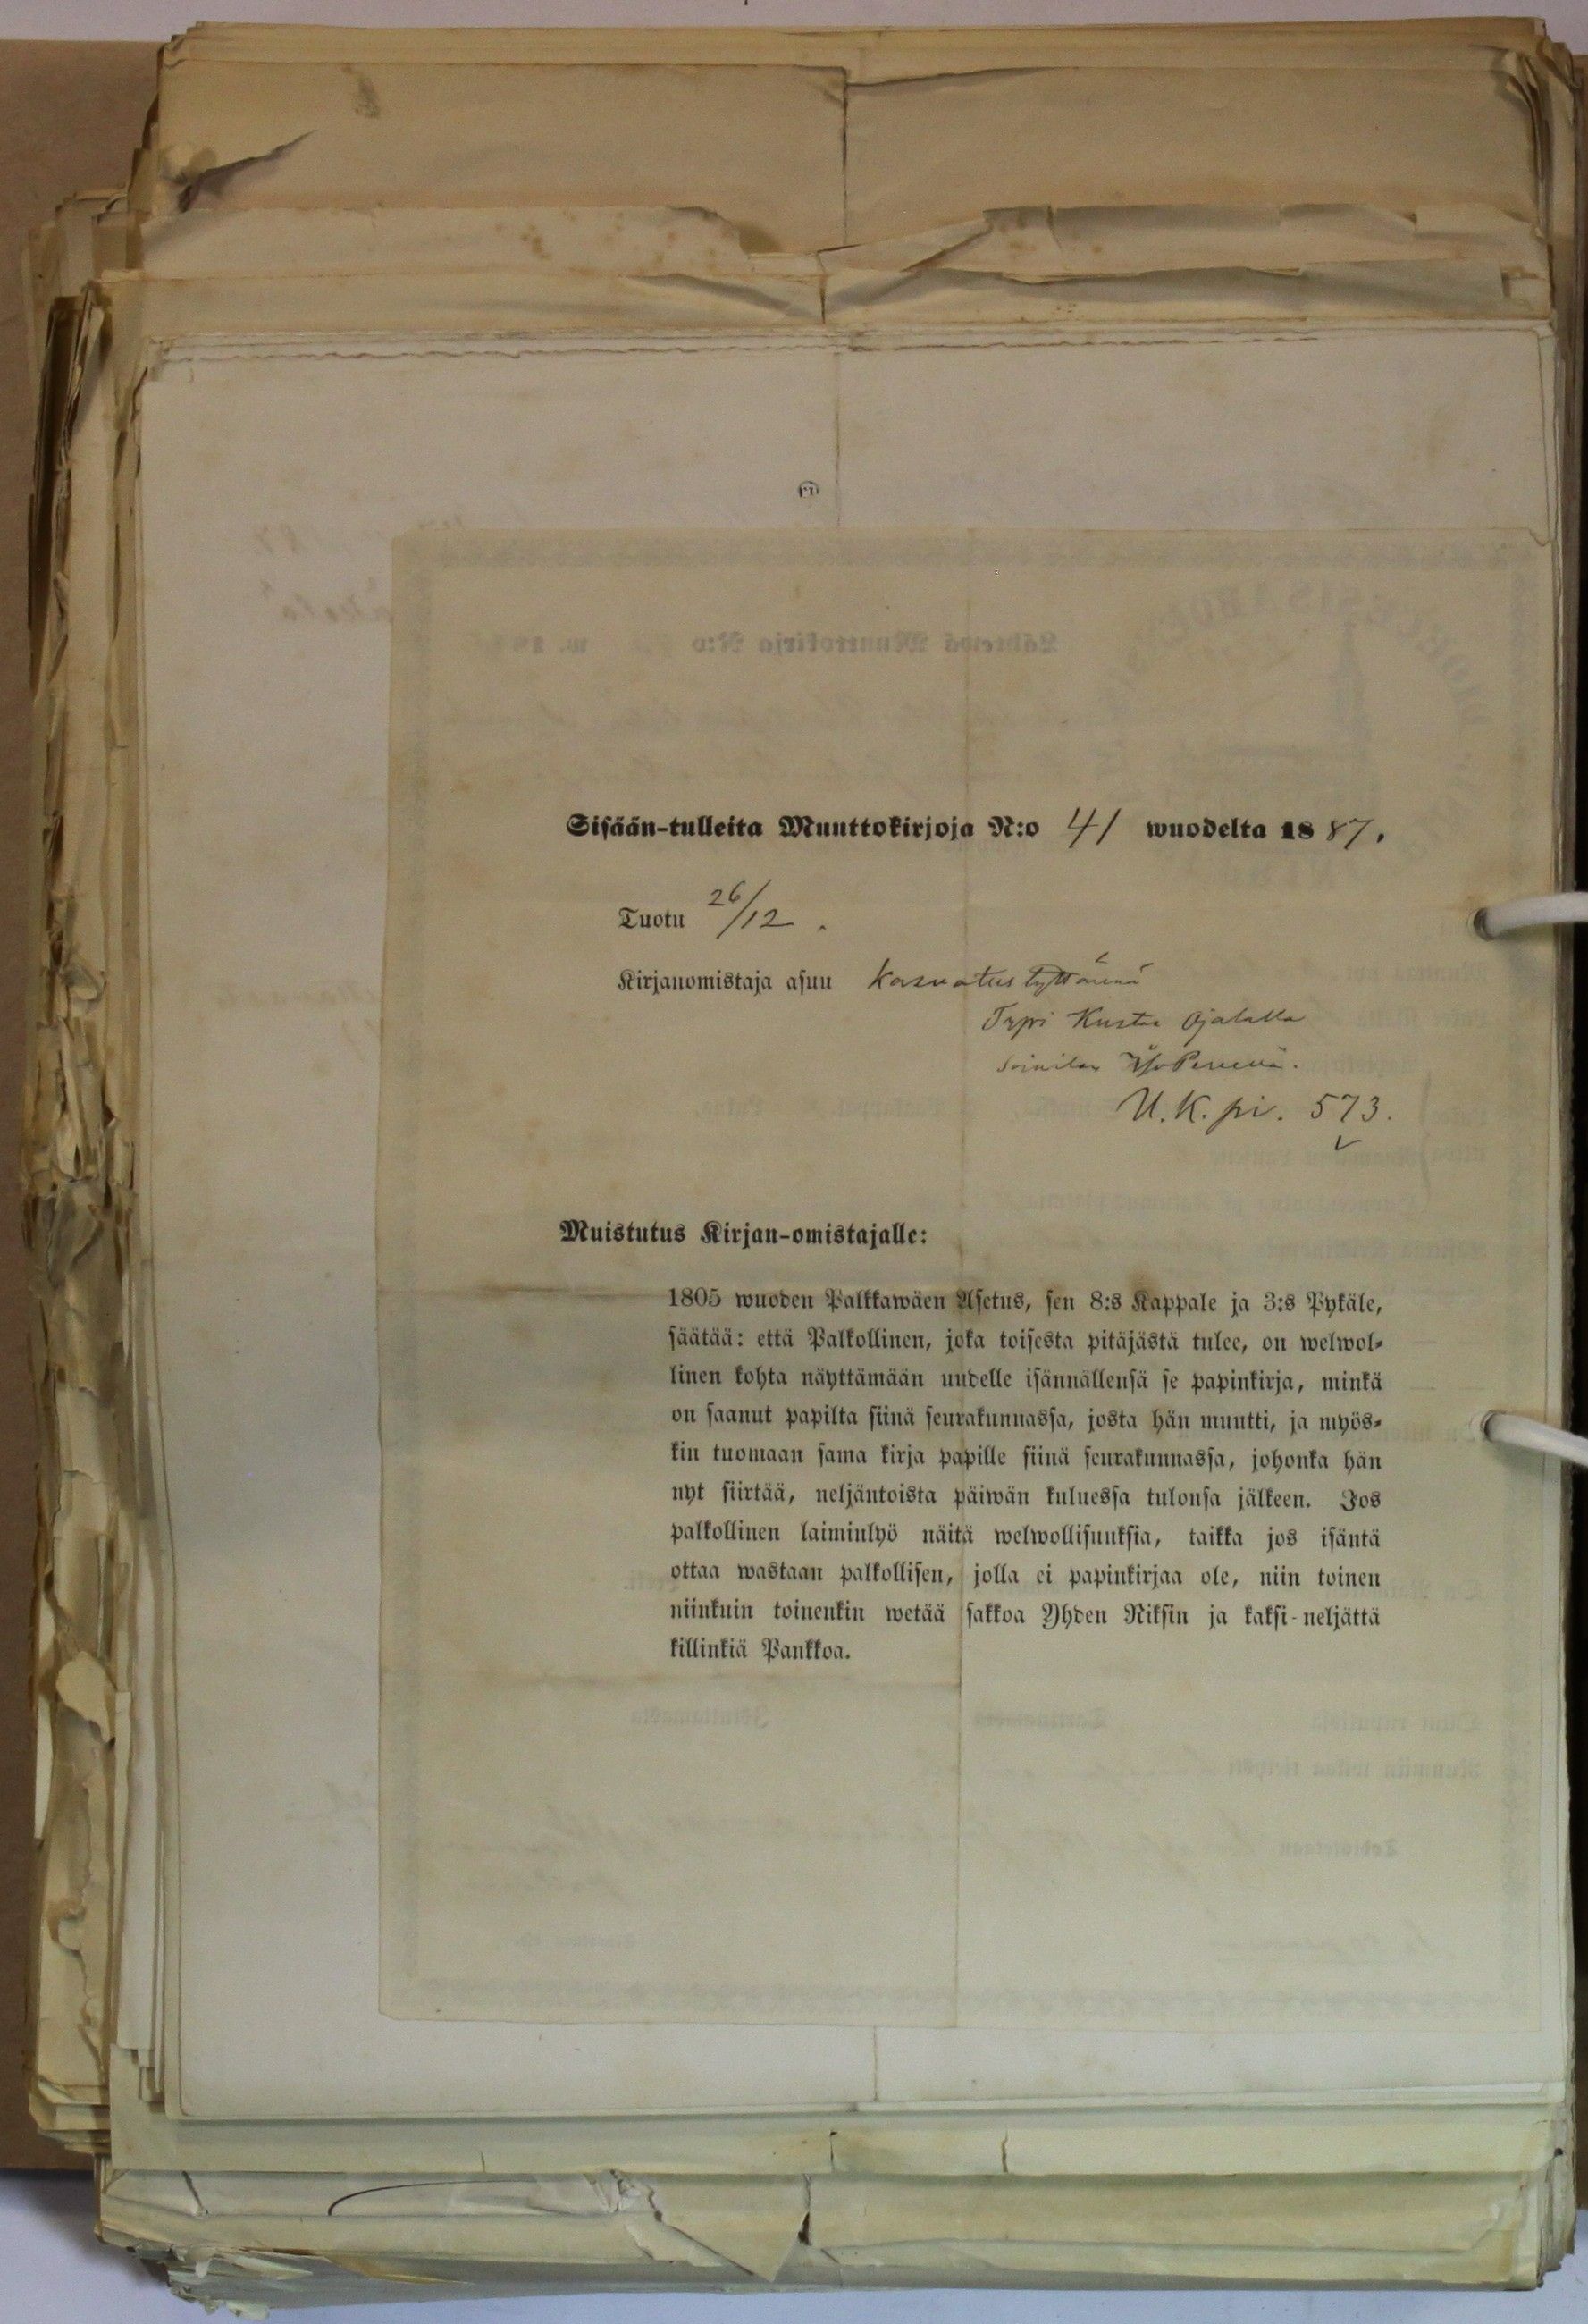 Sisään-tulleita Muuttokirjoja N:o 41 wuodelta 1887.
Tuotu 26/12.
Kirjanomistaja asuu Kasvatustyttärenä
Trpi Kustaa Ojalalla
U.K. pi. 573.
Muistutus Kirjan-omistajalle:
1805 wuoden Palkkawäen Asetus, sen 8:s Kappale ja 3:s Pykäle,
säätää: että Palkollinen, joka toisesta pitäjästä tulee, on welwol-
linen kohta näyttämään uudelle isännällensä se papinkirja, minkä
on saanut papilta siinä seurakunnassa, josta hän muutti, ja myös-
kin tuomaan sama kirja papille siinä seurakunnassa, johonka hän
nyt siirtää, neljäntoista päiwän kuluessa tulonsa jälkeen. Jos
palkollinen laiminlyö näitä welwollisuuksia, taikka jos isäntä
ottaa wastaan palkollisen, jolla ei papinkirjaa ole, niin toinen
niinkuin toinenkin wetää sakkoa Yhden Riksin ja kaksi-neljättä
killinkiä Pankkoa.